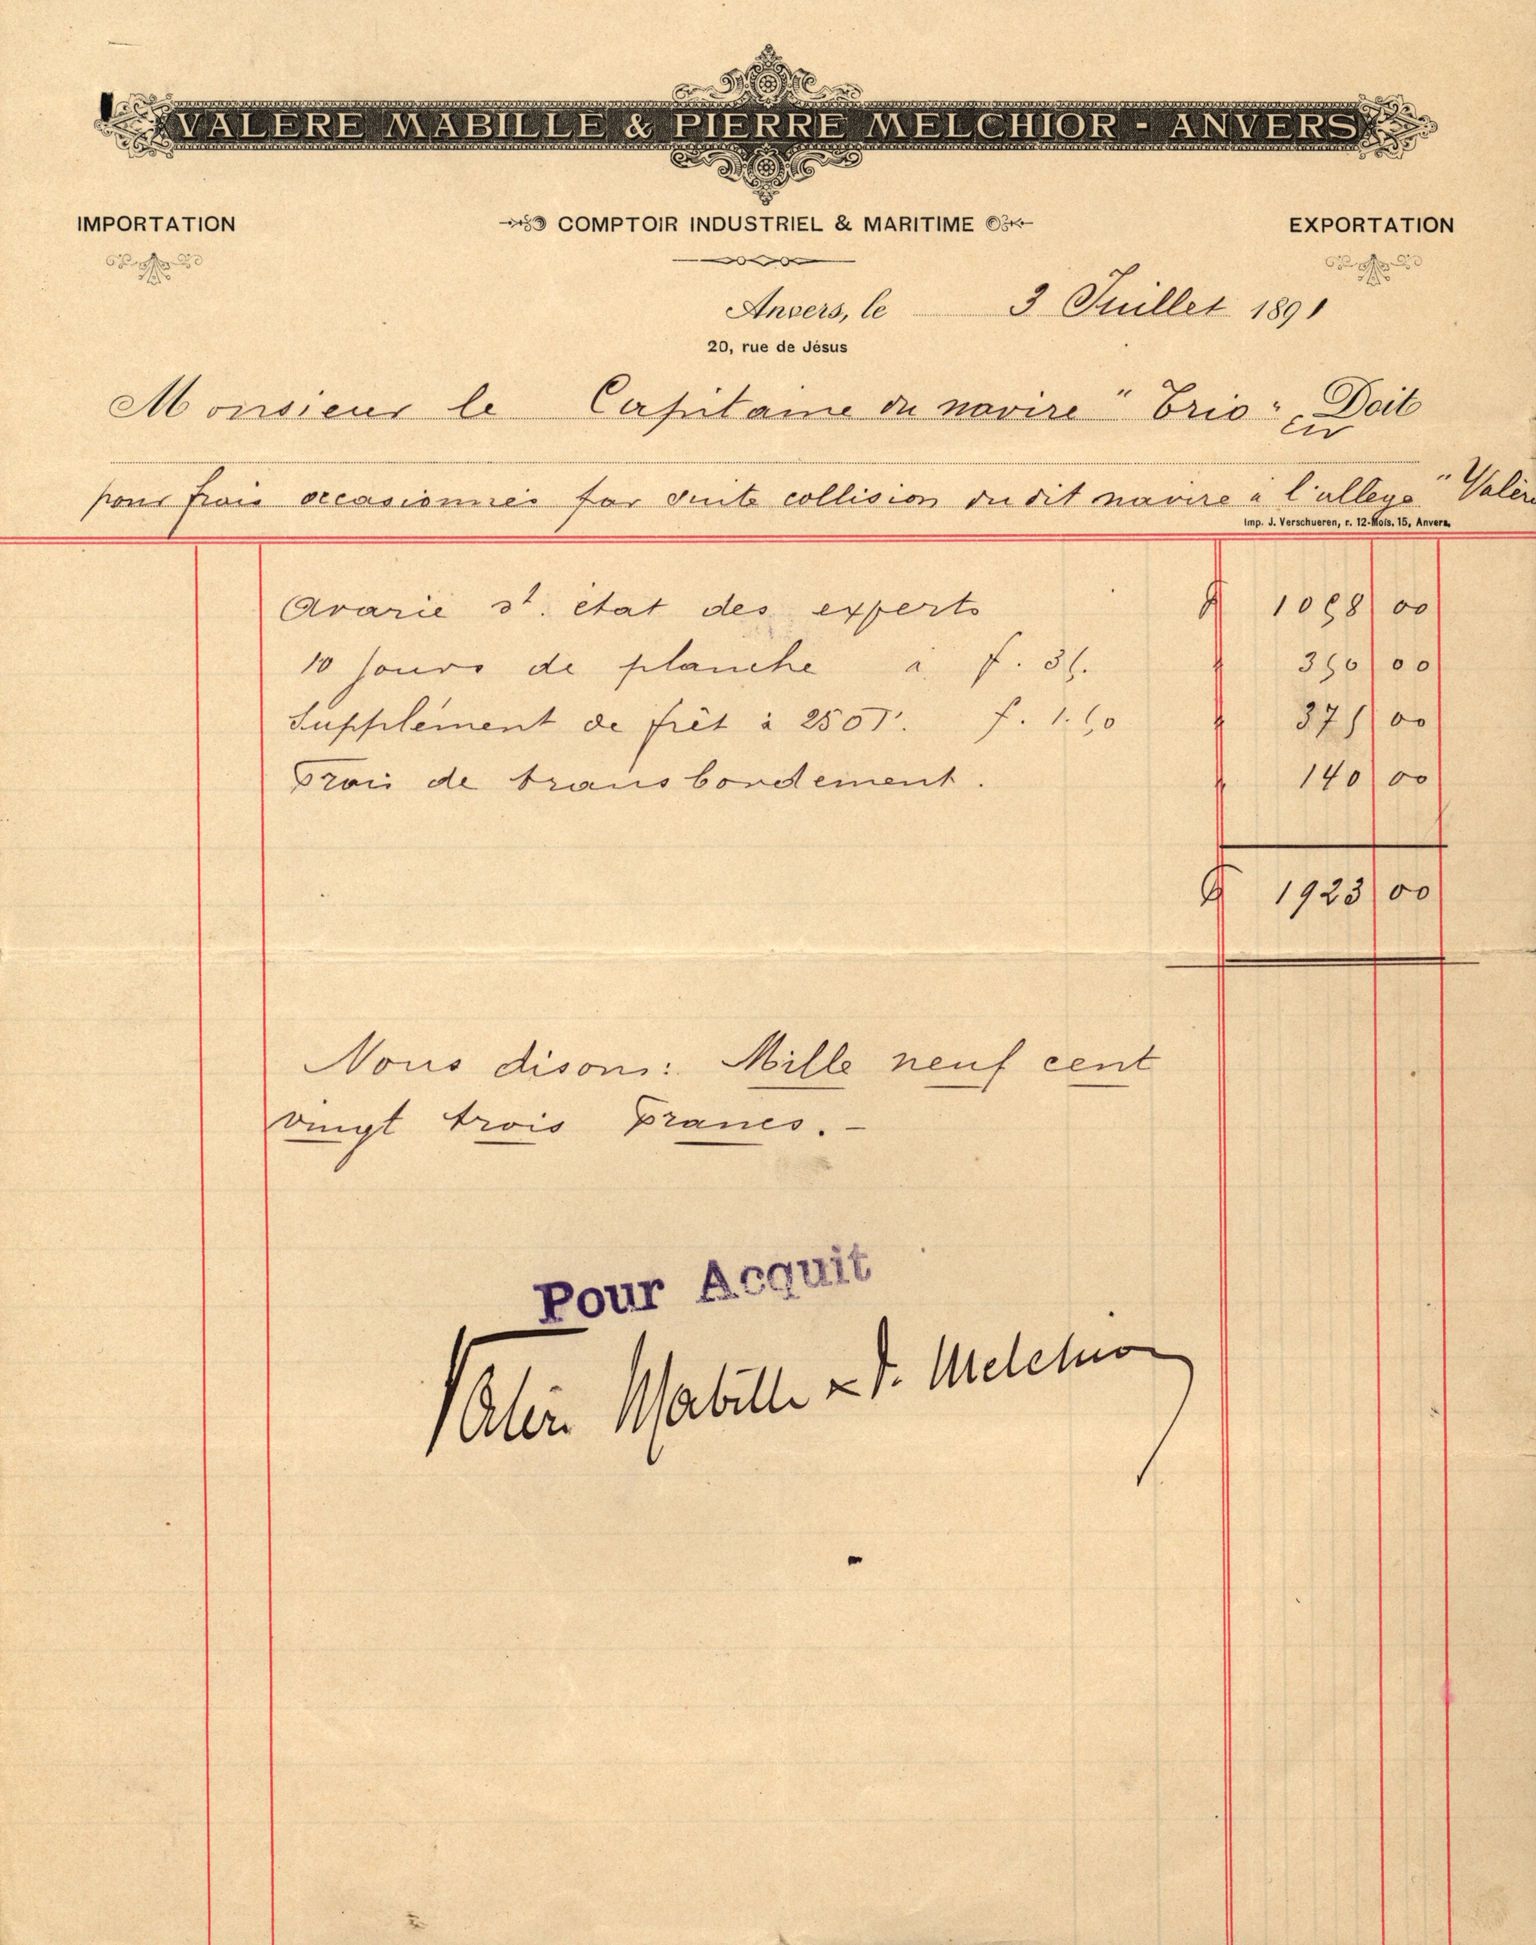 VALÈRE MABILLE & PIERRE MELCHIOR - ANVERS
IMPORTATION COMPTOIR INDUSTRIEL & MARITIME EXPORTATION
Anvers, le 3 Juillet 1891
20, rue de Jésus
Monsieur le Capitaine du navire "Trio" Doit
pour frais occasionnés par suite collision du dit navire à l'allege "Valère
Imp. J. Verschueren, r. 12-Mois, 15, Anvers.
Avarie st. état des experts f 1058 00
10 jours de planche à f. 35. " 350 00
Supplément de frêt à 250 T. f. 1.50 " 375 00
Frais de transbordement. " 140 00
f 1923 00
Nous disons: Mille neuf cent
vingt trois Francs. —
Pour Acquit
Valère Mabille & P. Melchior